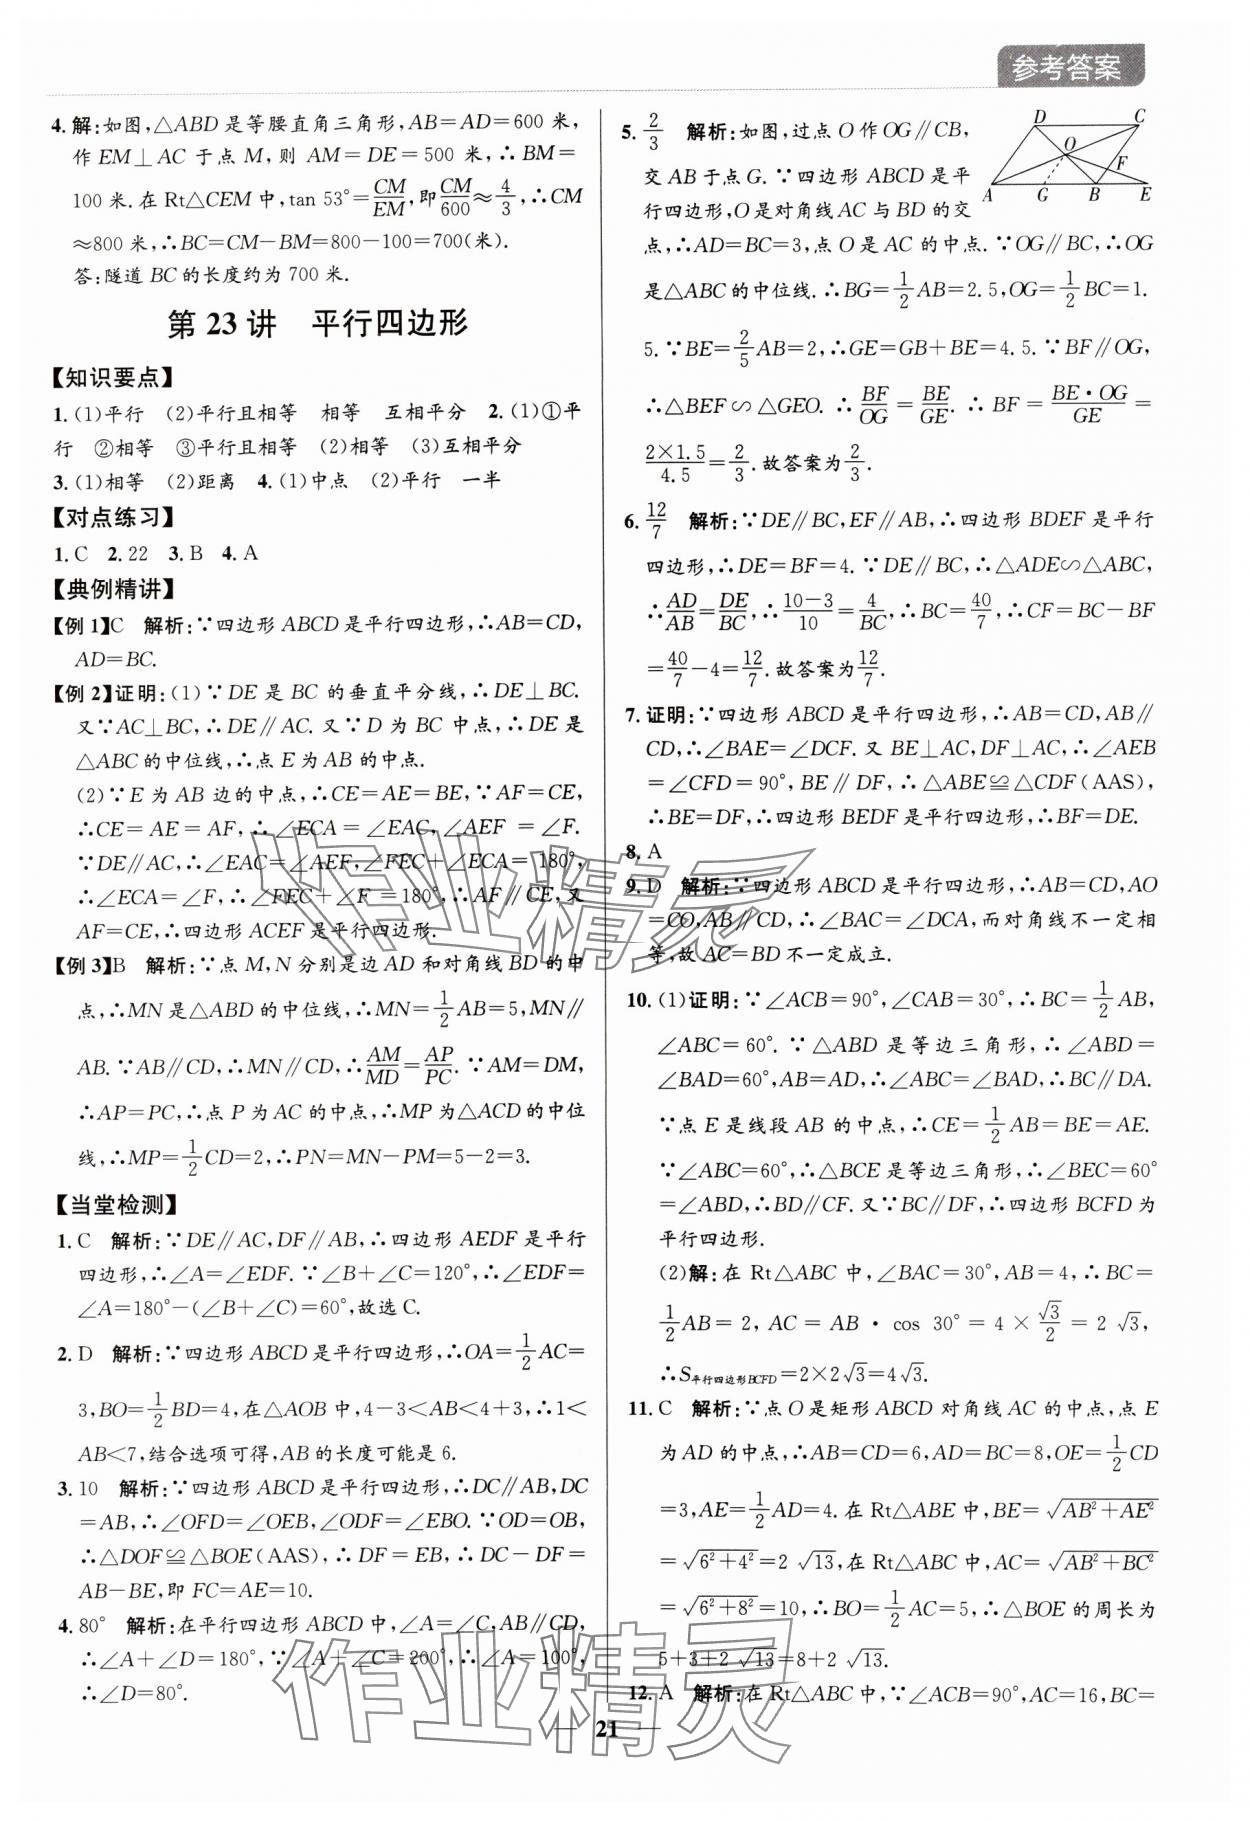 参考答案
4. 解:如图,△ABD是等腰直角三角形,AB=AD=600米,
作EM⊥AC于点M,则AM=DE=500米,∴BM=
100米.在Rt△CEM中,tan 53°=CM/EM,即CM/600≈4/3,∴CM
≈800米,∴BC=CM-BM=800-100=700(米).
答:隧道BC的长度约为700米.
第23讲 平行四边形
【知识要点】
1. (1)平行 (2)平行且相等 相等 互相平分 2. (1)①平
行 ②相等 ③平行且相等 (2)相等 (3)互相平分
3. (1)相等 (2)距离 4. (1)中点 (2)平行 一半
【对点练习】
1. C 2. 22 3. B 4. A
【典例精讲】
【例1】C 解析:∵四边形ABCD是平行四边形,∴AB=CD,
AD=BC.
【例2】证明:(1)∵DE是BC的垂直平分线,∴DE⊥BC.
又∵AC⊥BC,∴DE∥AC.又∵D为BC中点,∴DE是
△ABC的中位线,∴点E为AB的中点.
(2)∵E为AB边的中点,∴CE=AE=BE,∵AF=CE,
∴CE=AE=AF,∴∠ECA=∠EAC,∠AEF=∠F.
∵DE∥AC,∴∠EAC=∠AEF,∠FEC+∠ECA=180°,
∴∠ECA=∠F,∴∠FEC+∠F=180°,∴AF∥CE,又
AF=CE,∴四边形ACEF是平行四边形.
【例3】B 解析:∵点M,N分别是边AD和对角线BD的中
点,∴MN是△ABD的中位线,∴MN=1/2AB=5,MN∥
AB.∵AB∥CD,∴MN∥CD,∴AM/MD=AP/PC.∵AM=DM,
∴AP=PC,∴点P为AC的中点,∴MP为△ACD的中位
线,∴MP=1/2CD=2,∴PN=MN-PM=5-2=3.
【当堂检测】
1. C 解析:∵DE∥AC,DF∥AB,∴四边形AEDF是平行
四边形,∴∠A=∠EDF.∵∠B+∠C=120°,∴∠EDF=
∠A=180°-(∠B+∠C)=60°,故选C.
2. D 解析:∵四边形ABCD是平行四边形,∴OA=1/2AC=
3,BO=1/2BD=4,在△AOB中,4-3<AB<4+3,∴1<
AB<7,结合选项可得,AB的长度可能是6.
3. 10 解析:∵四边形ABCD是平行四边形,∴DC∥AB,DC
=AB,∴∠OFD=∠OEB,∠ODF=∠EBO.∵OD=OB,
∴△DOF≌△BOE(AAS),∴DF=EB,∴DC-DF=
AB-BE,即FC=AE=10.
4. 80° 解析:在平行四边形ABCD中,∠A=∠C,AB∥CD,
∴∠A+∠D=180°,∵∠A+∠C=200°,∴∠A=100°,
∴∠D=80°.
5. 2/3 解析:如图,过点O作OG∥CB,
交AB于点G.∵四边形ABCD是平
行四边形,O是对角线AC与BD的交
D C O F A G B E
点,∴AD=BC=3,点O是AC的中点.∵OG∥BC,∴OG
是△ABC的中位线.∴BG=1/2AB=2.5,OG=1/2BC=1.
5.∵BE=2/5AB=2,∴GE=GB+BE=4.5.∵BF∥OG,
∴△BEF∽△GEO.∴BF/OG=BE/GE.∴BF=BE·OG/GE=
2×1.5/4.5=2/3.故答案为2/3.
6. 12/7 解析:∵DE∥BC,EF∥AB,∴四边形BDEF是平行
四边形,∴DE=BF=4.∵DE∥BC,∴△ADE∽△ABC,
∴AD/AB=DE/BC,∴10-3/10=4/BC,∴BC=40/7,∴CF=BC-BF
=40/7-4=12/7.故答案为12/7.
7. 证明:∵四边形ABCD是平行四边形,∴AB=CD,AB∥
CD,∴∠BAE=∠DCF.又BE⊥AC,DF⊥AC,∴∠AEB
=∠CFD=90°,BE∥DF,∴△ABE≌△CDF(AAS),
∴BE=DF,∴四边形BEDF是平行四边形,∴BF=DE.
8. A
9. D 解析:∵四边形ABCD是平行四边形,∴AB=CD,AO
=CO,AB∥CD,∴∠BAC=∠DCA,而对角线不一定相
等,故AC=BD不一定成立.
10. (1)证明:∵∠ACB=90°,∠CAB=30°,∴BC=1/2AB,
∠ABC=60°.∵△ABD是等边三角形,∴∠ABD=
∠BAD=60°,AB=AD,∴∠ABC=∠BAD,∴BC∥DA.
∵点E是线段AB的中点,∴CE=1/2AB=BE=AE.
∵∠ABC=60°,∴△BCE是等边三角形,∴∠BEC=60°
=∠ABD,∴BD∥CF.又∵BC∥DF,∴四边形BCFD为
平行四边形.
(2)解:在Rt△ABC中,∠BAC=30°,AB=4,∴BC=
1/2AB=2,AC=AB·cos 30°=4×√3/2=2√3,
∴S平行四边形BCFD=2×2√3=4√3.
11. C 解析:∵点O是矩形ABCD对角线AC的中点,点E
为AD的中点,∴AB=CD=6,AD=BC=8,OE=1/2CD
=3,AE=1/2AD=4.在Rt△ABE中,BE=√(AB²+AE²)
=√(6²+4²)=2√13,在Rt△ABC中,AC=√(AB²+BC²)
=√(6²+8²)=10,∴BO=1/2AC=5,∴△BOE的周长为
5+3+2√13=8+2√13.
12. A 解析:在Rt△ABC中,∵∠ACB=90°,AC=16,BC=
21
作业精灵
作业精灵